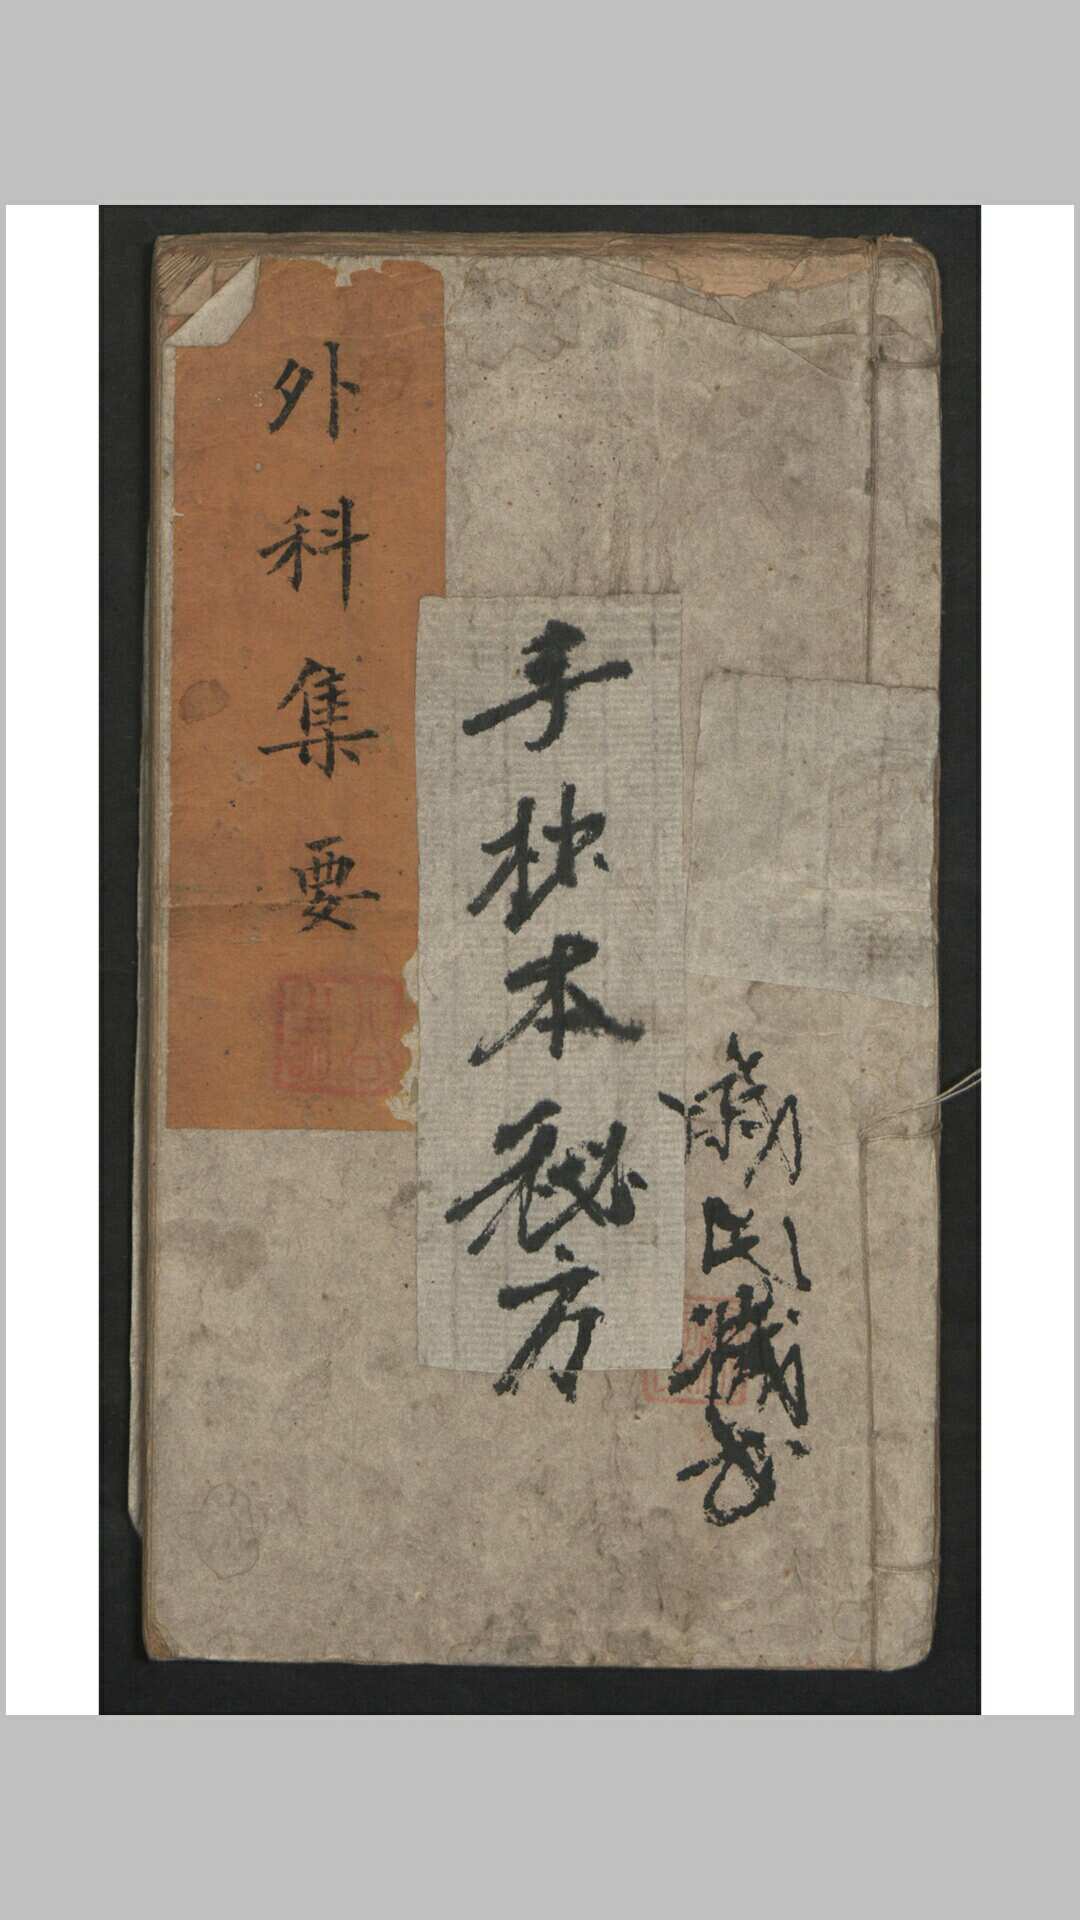 氏藏书
手抄本秘方
外科集要